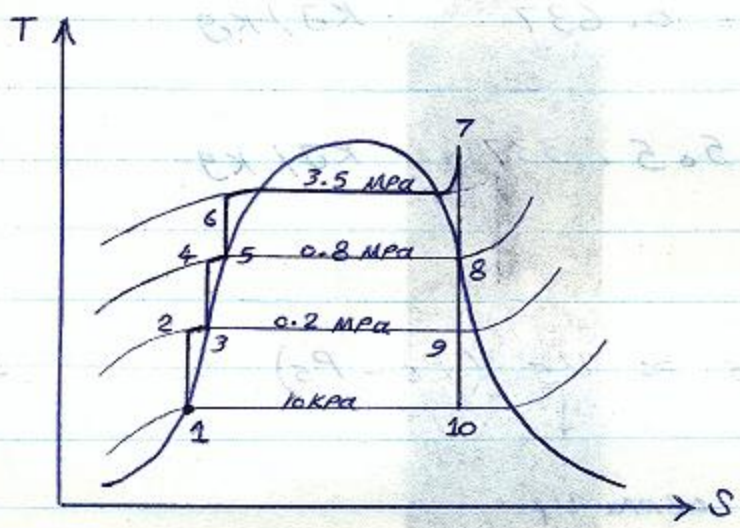 T
7
3.5 MPa
6
4
5
0.8 MPa
8
2
0.2 MPa
3
9
10 KPa
1
10
S